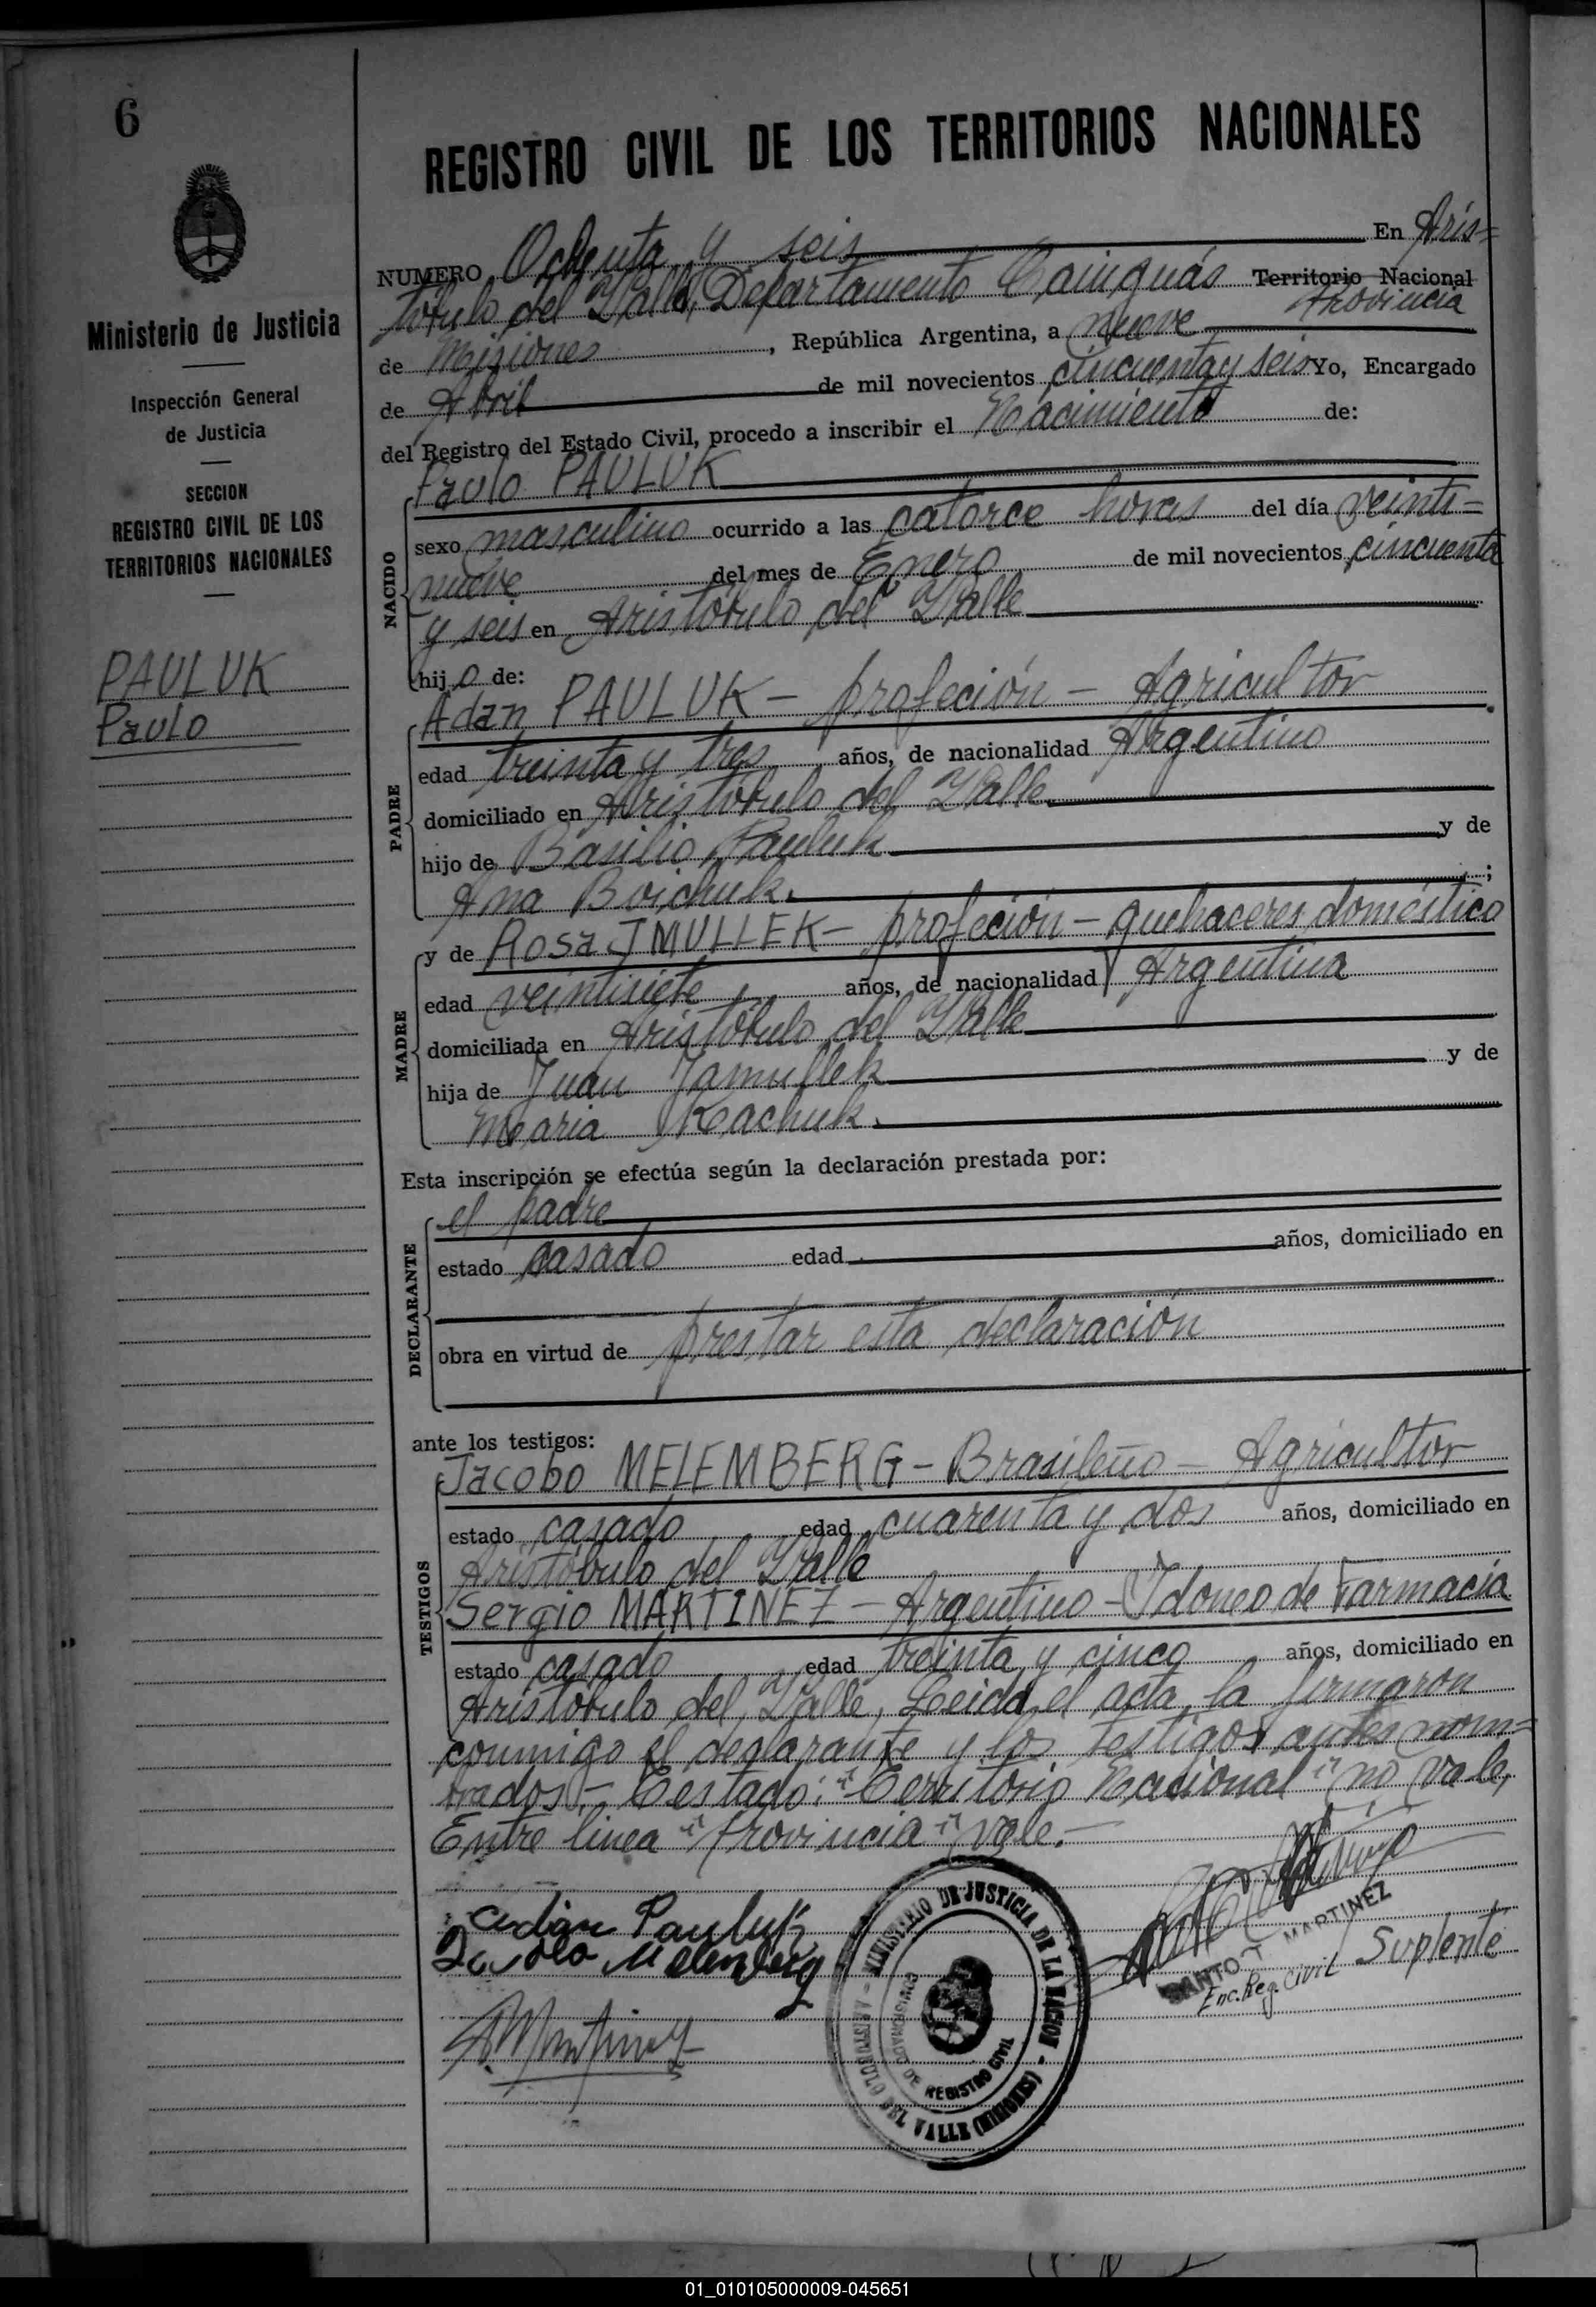 6
REGISTRO CIVIL DE LOS TERRITORIOS NACIONALES
Ministerio de Justicia
Inspección General
de Justicia
SECCION
REGISTRO CIVIL DE LOS
TERRITORIOS NACIONALES
PAULUK
Paulo
NUMERO Ochenta y seis En Aris=
tóbulo del Valle, Departamento Cainguás Territorio Nacional
Provincia
de Misiones, República Argentina, a nueve
de Abril de mil novecientos cincuenta y seis Yo, Encargado
del Registro del Estado Civil, procedo a inscribir el Nacimiento de:
NACIDO
Paulo PAULUK
sexo masculino ocurrido a las catorce horas del día veinti=
nueve del mes de Enero de mil novecientos cincuenta
y seis en Aristóbulo del Valle
hijo de:
PADRE
Adan PAULUK - profeción - Agricultor
edad treinta y tres años, de nacionalidad Argentino
domiciliado en Aristóbulo del Valle
hijo de Basilio Pauluk y de
Ana Boichuk. ;
MADRE
y de Rosa JMULLEK - profeción - quehaceres doméstico
edad veintisiete años, de nacionalidad Argentina
domiciliada en Aristóbulo del Valle
hija de Juan Jamullek y de
Maria Kachuk.
Esta inscripción se efectúa según la declaración prestada por:
DECLARANTE
el padre
estado casado edad años, domiciliado en
obra en virtud de prestar esta declaración
ante los testigos:
TESTIGOS
Jacobo MELEMBERG - Brasileño - Agricultor
estado casado edad cuarenta y dos años, domiciliado en
Aristóbulo del Valle
Sergio MARTINEZ - Argentino - Idoneo de Farmacia
estado casado edad treinta y cinco años, domiciliado en
Aristóbulo del Valle, Leida el acta la firmaron
conmigo el declarante y los testigos antes nom=
brados - Testado: "Territorio Nacional" no vale,
Entre linea "Provincia" vale.-
Adan Pauluk
Melemberg
SMartinez
MINISTERIO DE JUSTICIA DE LA NACION - ARISTOBULO DEL VALLE (MISIONES) -
COMISIONADO DE REGISTRO CIVIL
SANTO T. MARTINEZ
Enc. Reg. Civil Suplente
01_010105000009-045651